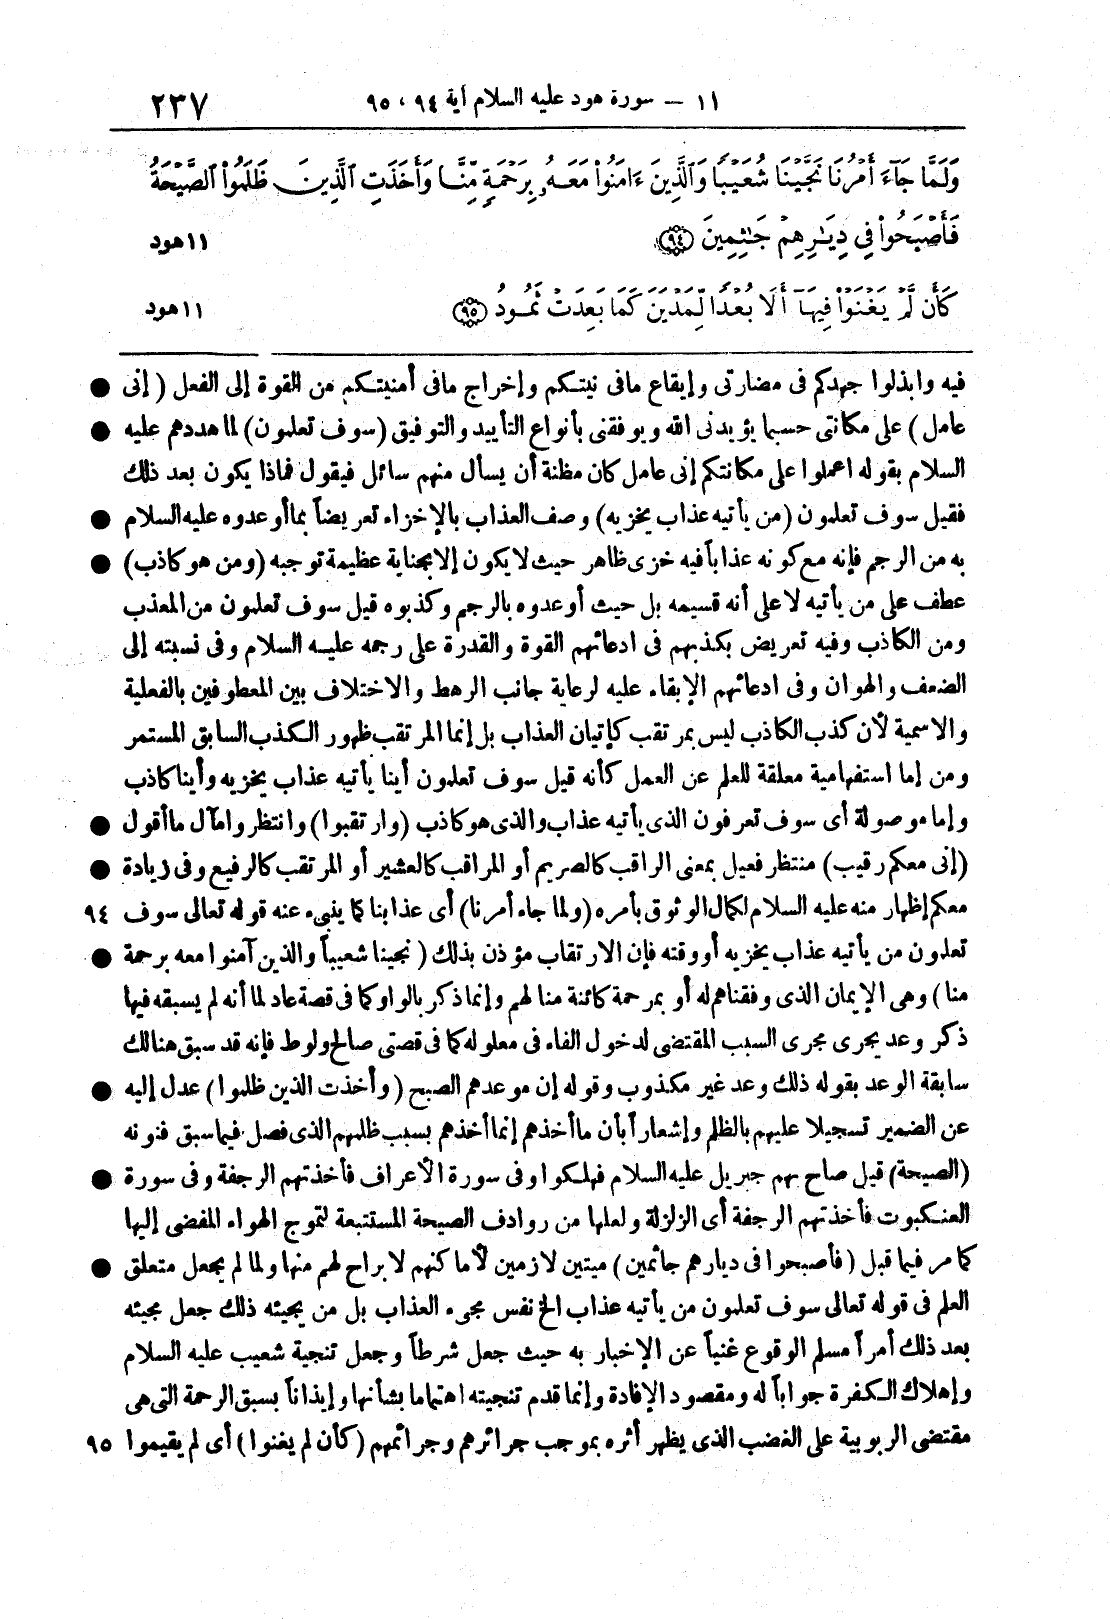 ١١ – سورة هود عليه السلام آية ٩٤ ، ٩٥ ٢٣٧
وَلَمَّا جَآءَ أَمْرُنَا نَجَّيْنَا شُعَيْبًا وَٱلَّذِينَ ءَامَنُوا۟ مَعَهُۥ بِرَحْمَةٍ مِّنَّا وَأَخَذَتِ ٱلَّذِينَ ظَلَمُوا۟ ٱلصَّيْحَةُ
فَأَصْبَحُوا۟ فِى دِيَـٰرِهِمْ جَـٰثِمِينَ ﴿٩٤﴾ ١١ هود
كَأَن لَّمْ يَغْنَوْا۟ فِيهَآ أَلَا بُعْدًا لِّمَدْيَنَ كَمَا بَعِدَتْ ثَمُودُ ﴿٩٥﴾ ١١ هود
فيه وابذلوا جهدكم فى مضارتى وإيقاع مافى نيتكم وإخراج مافى أمنيتكم من القوة إلى الفعل ( إنى ●
عامل ) على مكانتى حسبما يؤيدنى الله ويوفقنى بأنواع التأييد والتوفيق (سوف تعلمون) لما هددهم عليه ●
السلام بقوله اعملوا على مكانتكم إنى عامل كان مظنة أن يسأل منهم سائل فيقول فماذا يكون بعد ذلك
فقيل سوف تعلمون (من يأتيه عذاب يخزيه) وصف العذاب بالإخزاء تعريضاً بما أوعدوه عليه السلام ●
به من الرجم فإنه مع كونه عذاباً فيه خزى ظاهر حيث لا يكون إلا بجناية عظيمة توجبه (ومن هو كاذب) ●
عطف على من يأتيه لا على أنه قسيمه بل حيث أوعدوه بالرجم وكذبوه قيل سوف تعلمون من المعذب
ومن الكاذب وفيه تعريض بكذبهم فى ادعائهم القوة والقدرة على رجمه عليه السلام وفى نسبته إلى
الضعف والهوان وفى ادعائهم الإبقاء عليه لرعاية جانب الرهط والاختلاف بين المعطوفين بالفعلية
والاسمية لأن كذب الكاذب ليس بمرتقب كإتيان العذاب بل إنما المرتقب ظهور الكذب السابق المستمر
ومن إما استفهامية معلقة للعلم عن العمل كأنه قيل سوف تعلمون أينا يأتيه عذاب يخزيه وأينا كاذب
وإما موصولة أى سوف تعرفون الذى يأتيه عذاب والذى هو كاذب (وارتقبوا) وانتظروا مآل ما أقول ●
(إنى معكم رقيب) منتظر فعيل بمعنى الراقب كالصريم أو المراقب كالعشير أو المرتقب كالرفيع وفى زيادة ●
معكم إظهار منه عليه السلام لكمال الوثوق بأمره (ولما جاء أمرنا) أى عذابنا كما ينبىء عنه قوله تعالى سوف ٩٤
تعلمون من يأتيه عذاب يخزيه أو وقته فإن الارتقاب مؤذن بذلك ( نجينا شعيباً والذين آمنوا معه برحمة ●
منا) وهى الإيمان الذى وفقناهم له أو بمرحمة كائنة منا لهم وإنما ذكر بالواو كما فى قصة عاد لما أنه لم يسبقه فيها
ذكر وعد يجرى مجرى السبب المقتضى لدخول الفاء فى معلوله كما فى قصتى صالح ولوط فإنه قد سبق هنالك
سابقة الوعد بقوله ذلك وعد غير مكذوب وقوله إن موعدهم الصبح ( وأخذت الذين ظلموا ) عدل إليه ●
عن الضمير تسجيلا عليهم بالظلم وإشعاراً بأن ما أخذهم إنما أخذهم بسبب ظلمهم الذى فصل فيما سبق فنونه
(الصيحة) قيل صاح بهم جبريل عليه السلام فهلكوا وفى سورة الأعراف فأخذتهم الرجفة وفى سورة ●
العنكبوت فأخذتهم الرجفة أى الزلزلة ولعلها من روادف الصيحة المستتبعة لتموج الهواء المفضى إليها
كما مر فيما قبل ( فأصبحوا فى ديارهم جاثمين ) ميتين لازمين لأماكنهم لا براح لهم منها ولما لم يجعل متعلق ●
العلم فى قوله تعالى سوف تعلمون من يأتيه عذاب الخ نفس مجىء العذاب بل من يجيئه ذلك جعل مجيئه
بعد ذلك أمراً مسلم الوقوع غنياً عن الإخبار به حيث جعل شرطاً وجعل تنجية شعيب عليه السلام
وإهلاك الكفرة جواباً له ومقصود الإفادة وإنما قدم تنجيته اهتماما بشأنها وإيذاناً بسبق الرحمة التى هى
مقتضى الربوبية على الغضب الذى يظهر أثره بموجب جرائرهم وجرائمهم (كأن لم يغنوا) أى لم يقيموا ٩٥